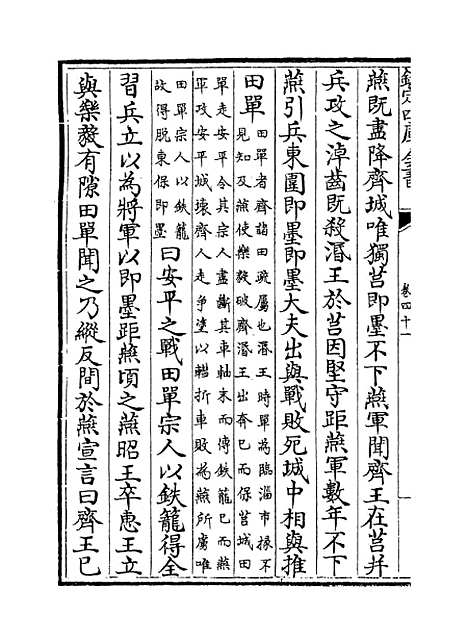 欽定四庫全書
卷四十一
燕既盡降齊城唯獨莒即墨不下燕軍聞齊王在莒并
兵攻之淖齒既殺湣王於莒因堅守距燕軍數年不下
燕引兵東圍即墨即墨大夫出與戰敗死城中相與推
田單田單者齊諸田疏屬也湣王時單為臨淄市掾不
見知及燕使樂毅破齊湣王出奔已而保莒城田
單走安平令其宗人盡斷其車軸末而傅鉄籠已而燕
軍攻安平城壊齊人走爭塗以轊折車敗為燕所虜唯
田單宗人以鉄籠
故得脫東保即墨曰安平之戰田單宗人以鉄籠得全
習兵立以為將軍以即墨距燕頃之燕昭王卒惠王立
與樂毅有隙田單聞之乃縱反間於燕宣言曰齊王已